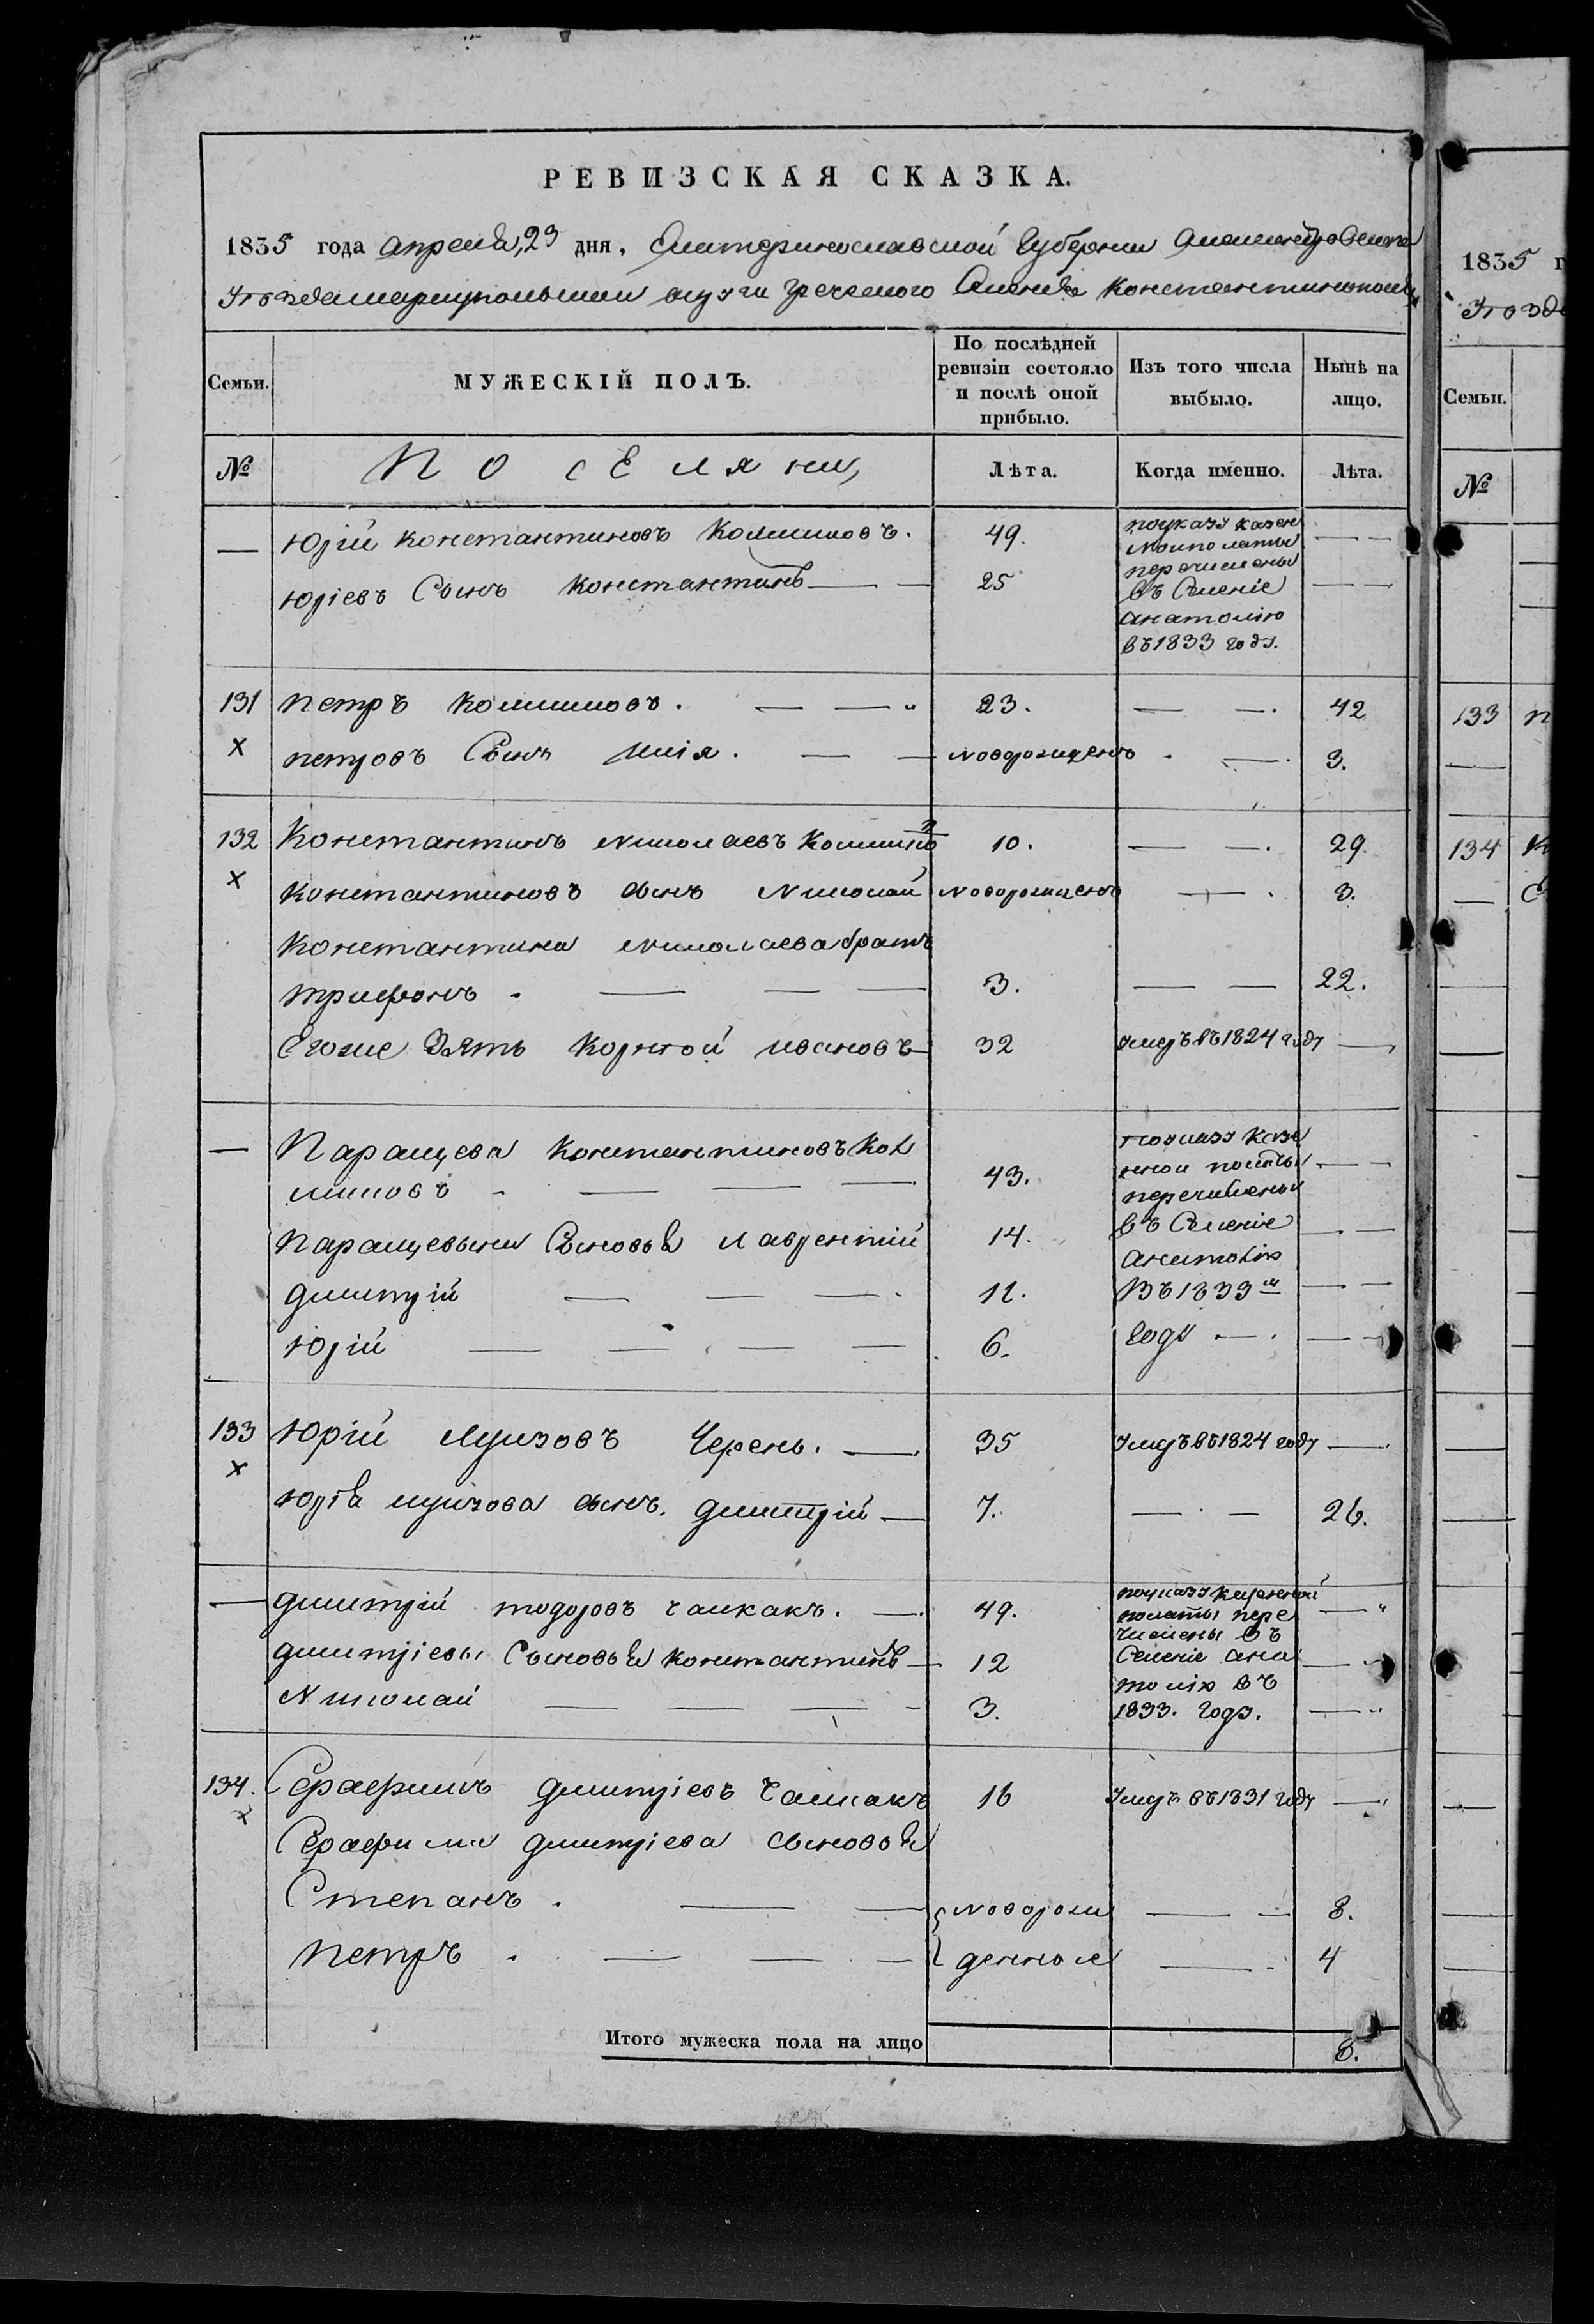 РЕВИЗСКАЯ СКАЗКА.
1835 года апреля 23 дня. Екатеринославской Губернии Александровскаго
Уезда Мариупольскаго округи греческаго Селенія Константинополь
Семьи. МУЖЕСКІЙ ПОЛЪ. По послѣдней ревизіи состояло и послѣ оной прибыло. Изъ того числа выбыло. Нынѣ на лицо.
№ Поселяни, Лѣта. Когда именно. Лѣта.
— Юрій Константиновъ 49. поуказу казен
ной полаты
Юріевъ Сынъ Константинъ 25 перечислены
въ Селеніе
Анатолію
въ 1833 году.
131 Петръ 23. — 42
х Петровъ Сынъ Илія. — новорожденъ — 3.
132 Константинъ Николаевъ 10. — 29.
х Константиновъ сынъ Николай новорожденъ — 3.
Константина Николаева братъ
Трифонъ. — 3. — 22.
Егоже Зять Корней Ивановъ 32 умеръ въ 1824 году —
— Паращева Константиновъ поуказу казе
43. нной полаты
перечислены
Паращевыни Сыновья Лаврентій 14. въ Селеніе
Анатолію
Дмитрій 12. въ 1833 м
Юрій 6. году —
133 Юрій Черень. — 35 умеръ въ 1824 году —
х Юрія сынъ. Дмитрій — 7. — 26.
— Дмитрій Тодоровъ Чалкакъ. — 49. поуказу казенной
полаты пере
числены въ
Дмитріевы Сыновья Константинъ — 12 Селеніе Ана
толію въ
Николай — 3. 1833. году.
134. Серафимъ Дмитріевъ Чалкакъ 16 умеръ въ 1831 году —
х Серафима Дмитріева сыновья
Степанъ. — новорож — 8.
Петръ. — денные — 4
Итого мужеска пола на лицо 8.
1835 г
Уезда
Семьи.
№
133 П
134 К
С